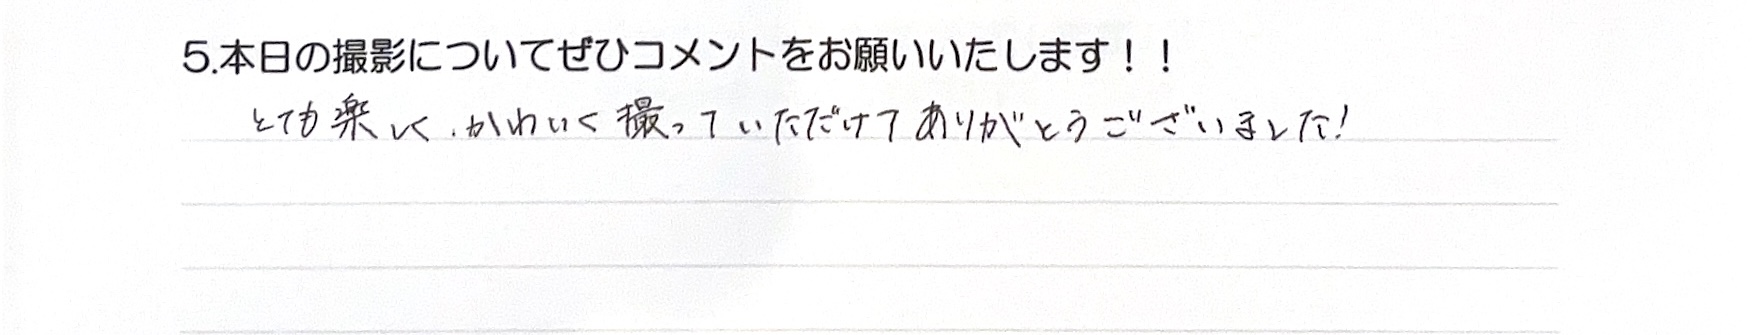 5.本日の撮影についてぜひコメントをお願いいたします！！
とても楽しく、かわいく撮っていただけてありがとうございました!